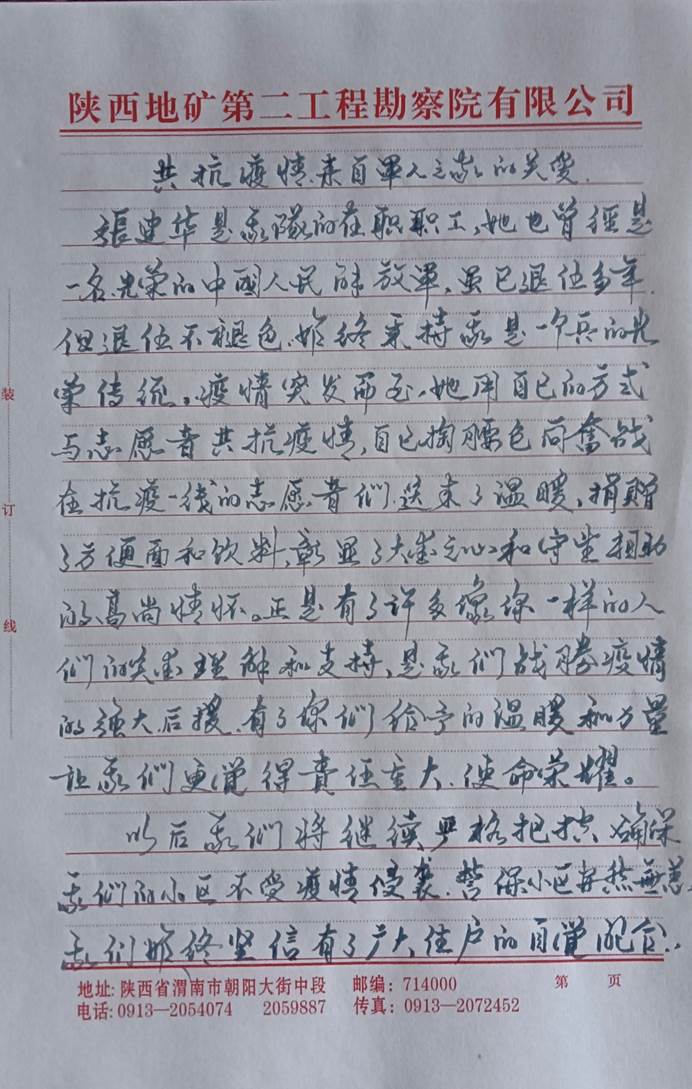 陕西地矿第二工程勘察院有限公司
共抗疫情.来自军人之家的关爱.
張建华是我隊的在职职工,她也曾经是
一名光荣的中國人民解放軍,虽已退伍多年.
但退伍不褪色.始终秉持我是一个兵的光
荣传统。疫情突发而至,她用自己的方式
与志愿者共抗疫情,自己掏腰包向奮战
在抗疫一线的志愿者们.送来了温暖,捐贈
了方便面和饮料,彰显了大爱之心和守望相助
的高尚情怀。正是有了许多像你一样的人
们的关爱理解和支持,是我们战勝疫情
的强大后援.有了你们给予的温暖和力量
让我们更覺得責任重大.使命荣耀。
以后我们将继续严格把控 确保
我们的小区不受疫情侵袭.誓保小区安然無恙.
我们始终坚信有了广大住户的自覺配合..
装
订
线
地址:陕西省渭南市朝阳大街中段 邮编:714000 第 页
电话:0913—2054074 2059887 传真:0913—2072452